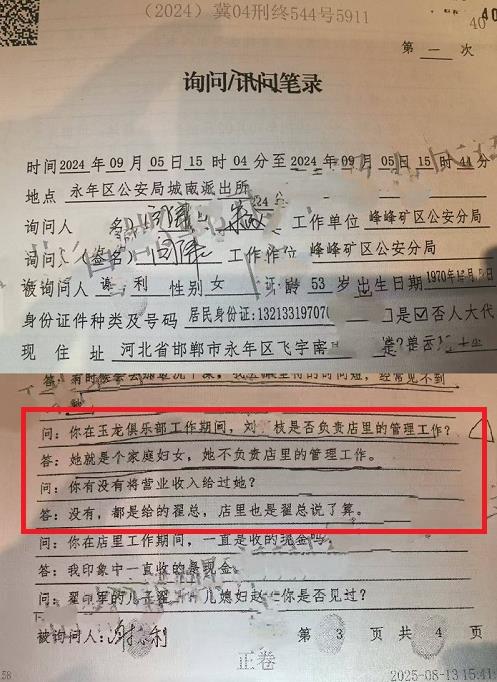 （2024）冀04刑终544号5911
40
40
第 一 次
询问/讯问笔录
时间2024 年 09 月 05 日 15 时 04 分至 2024 年 09 月 05 日 15 时 44 分
地点 永年区公安局城南派出所
询问人 名） 工作单位 峰峰矿区公安分局
（签名） 工作单位 峰峰矿区公安分局
被询问人 利 性别 女 龄 53 岁 出生日期 1970年
身份证件种类及号码 居民身份证:13213319707 是☑否人大代
现 住 址 河北省邯郸市永年区飞宇南
答: 经常见不到
问: 你在玉龙俱乐部工作期间，刘 枝是否负责店里的管理工作？
答: 她就是个家庭妇女，她不负责店里的管理工作。
问: 你有没有将营业收入给过她？
答: 没有，都是给的翟总，店里也是翟总说了算。
问: 你在店里工作期间，一直是收的现金吗
答: 我印象中一直收的是现金
问: 翟 里的儿子翟 儿媳妇赵 你是否见过？
被询问人: 利 第 3 页 共 4 页
正卷
58
2025-08-13 15:41